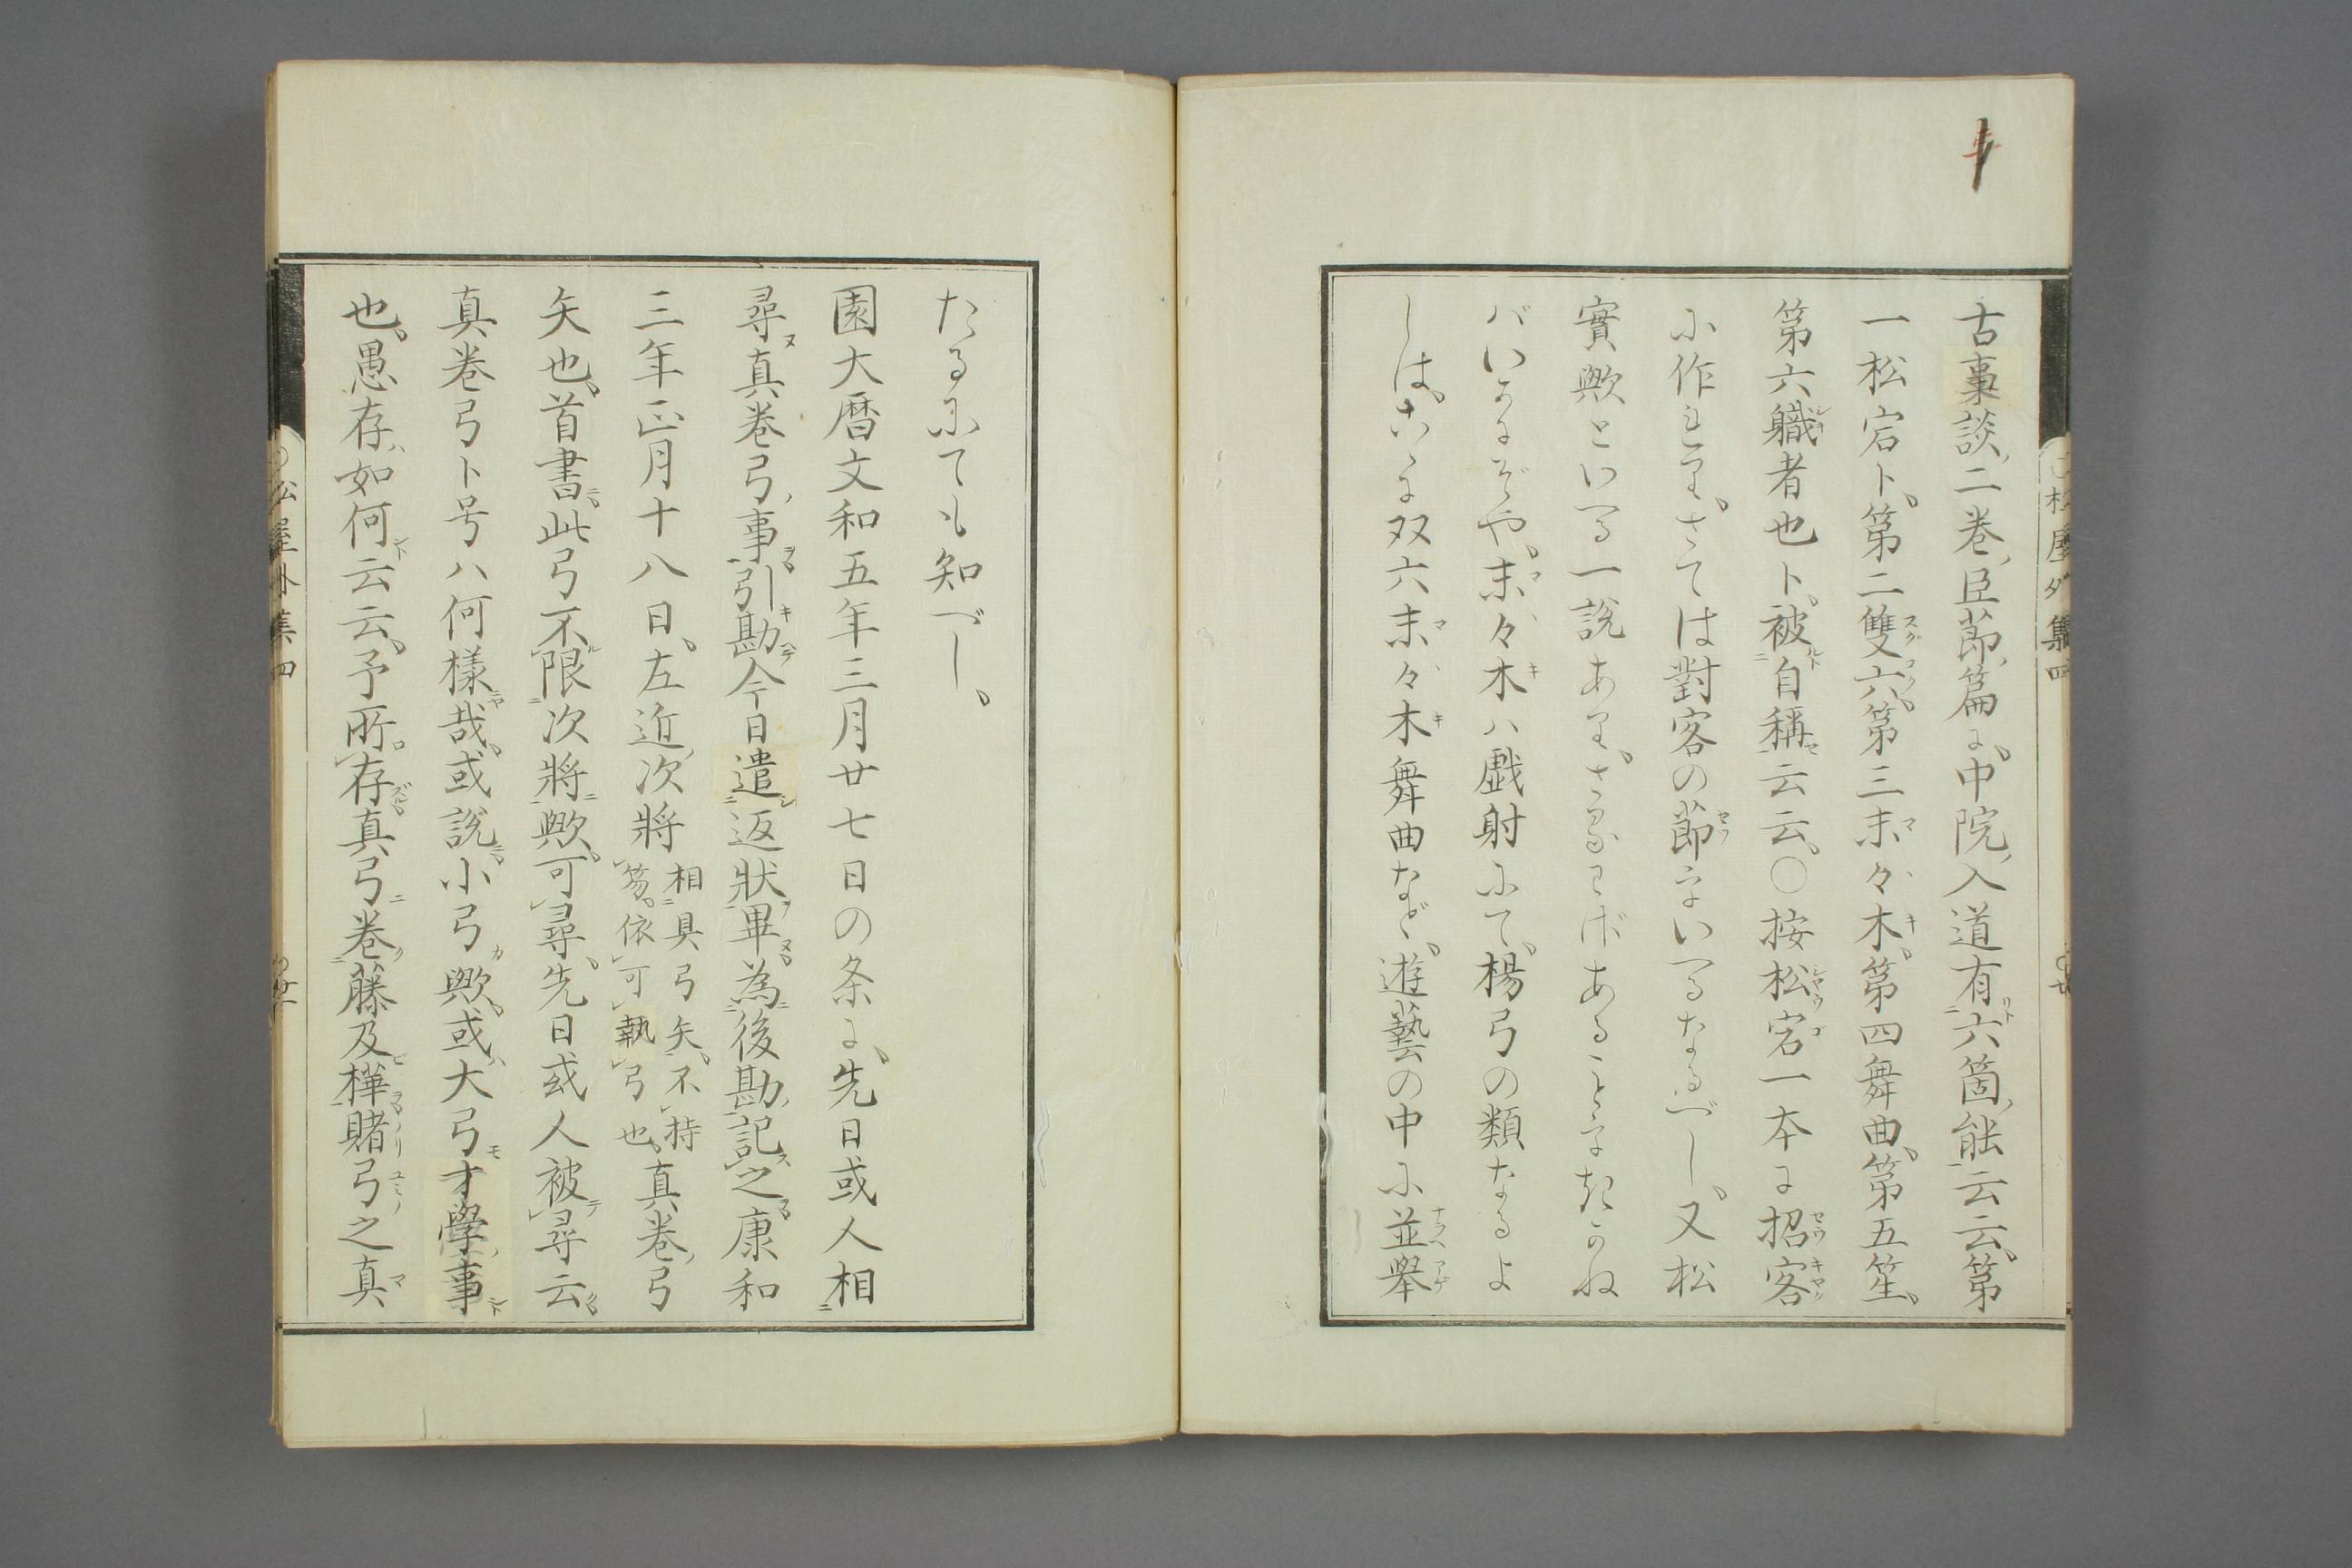 古事談二巻臣莭篇に、中院入道有六箇能云云、第
一松宕ト、第二雙六、第三末々木、第四舞曲、第五笙、
第六職者也ト、被自稱云云、〇按松宕一本に招客
に作れり、さては對客の莭をいへるなるべし、又松
實歟といへる一説あり、さらではあることをきかね
バいかにぞや、末々木ハ戯射にて、楊弓の類なるよ
しは、こゝに双六末々木舞曲など、遊藝の中に並舉
たるにても知べし、
園大暦文和五年三月廿七日の条に、先日或人相
尋真巻弓事引勘、今日遣返狀畢、為後勘記之、康和
三年正月十八日、左近次將相具弓矢、不持笏、依可執弓也、真巻弓
矢也、首書此弓不限次將歟、可尋、先日或人被尋云
真巻弓ト号ハ何様哉、或説小弓歟、或大弓才學事
也、愚存如何云云、予所存真弓巻藤及樺賭弓之真
〇松屋外集四